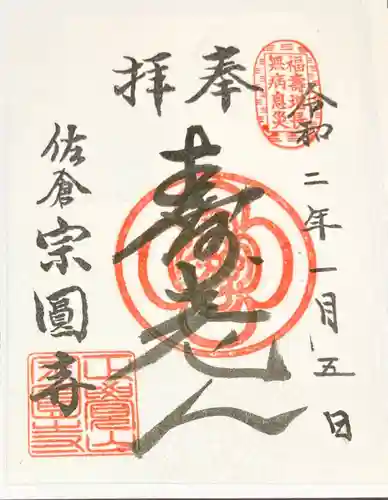 奉拝
福壽増長
無病息災
令和二年一月五日
壽老人
佐倉宗圓寺